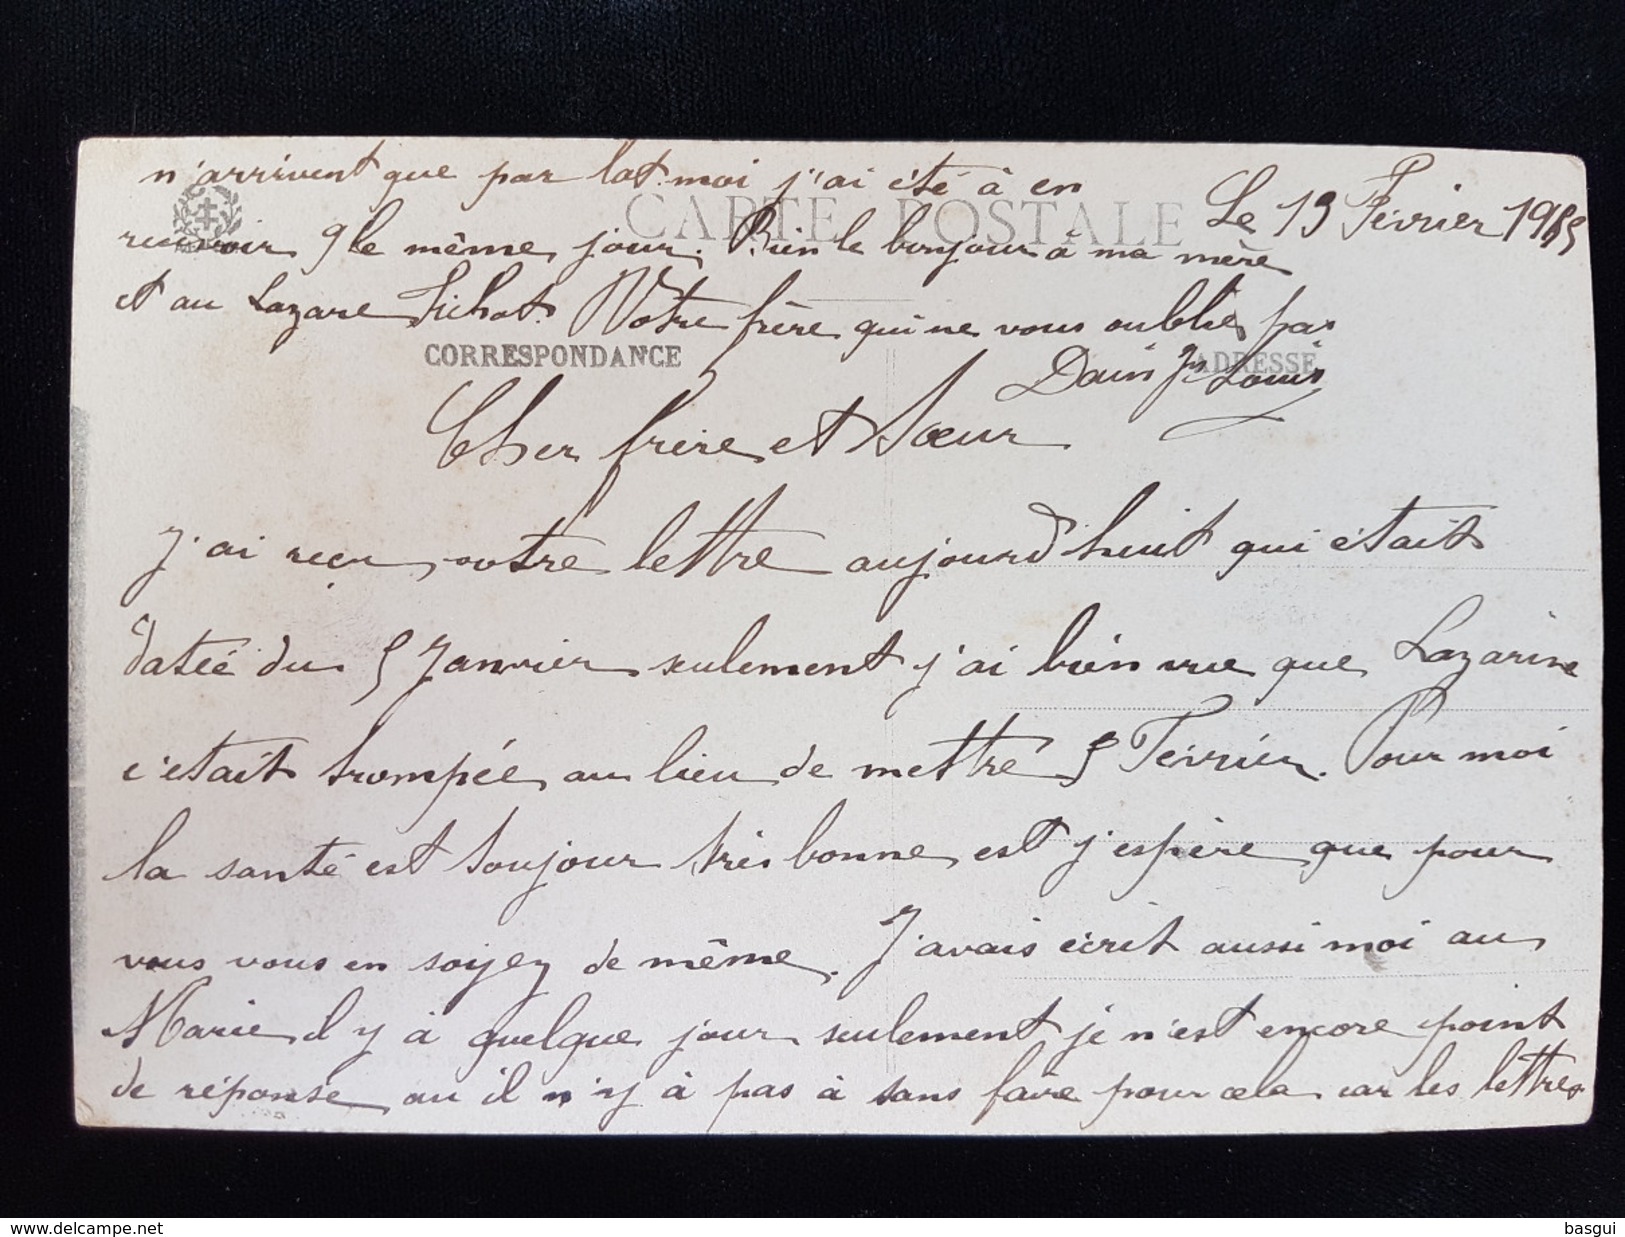 Le 13 Fevrier 19
CARTE POSTALE
CORRESPONDANCE
ADRESSE
Cher frère et Sœur
J'ai reçu votre lettre aujourd'huit qui était
datée du 5 Janvier seulement j'ai bien vue que Lazarine
c'etait trompée au lieu de mettre 5 Fevrier. Pour moi
la santé est toujour très bonne est j'espère que pour
vous vous en soyez de même. J'avais écrit aussi moi au
Marie il y à quelque jour seulement je n'est encore point
de réponse au il n'y à pas à sans faire pour cela car les lettres
n'arrivent que par lot. moi j'ai été à en
recevoir 9 le même jour. Bien le bonjour à ma mère
et au Lazare Votre frère qui ne vous oublie pas
Louis
delcampe.net
basgui